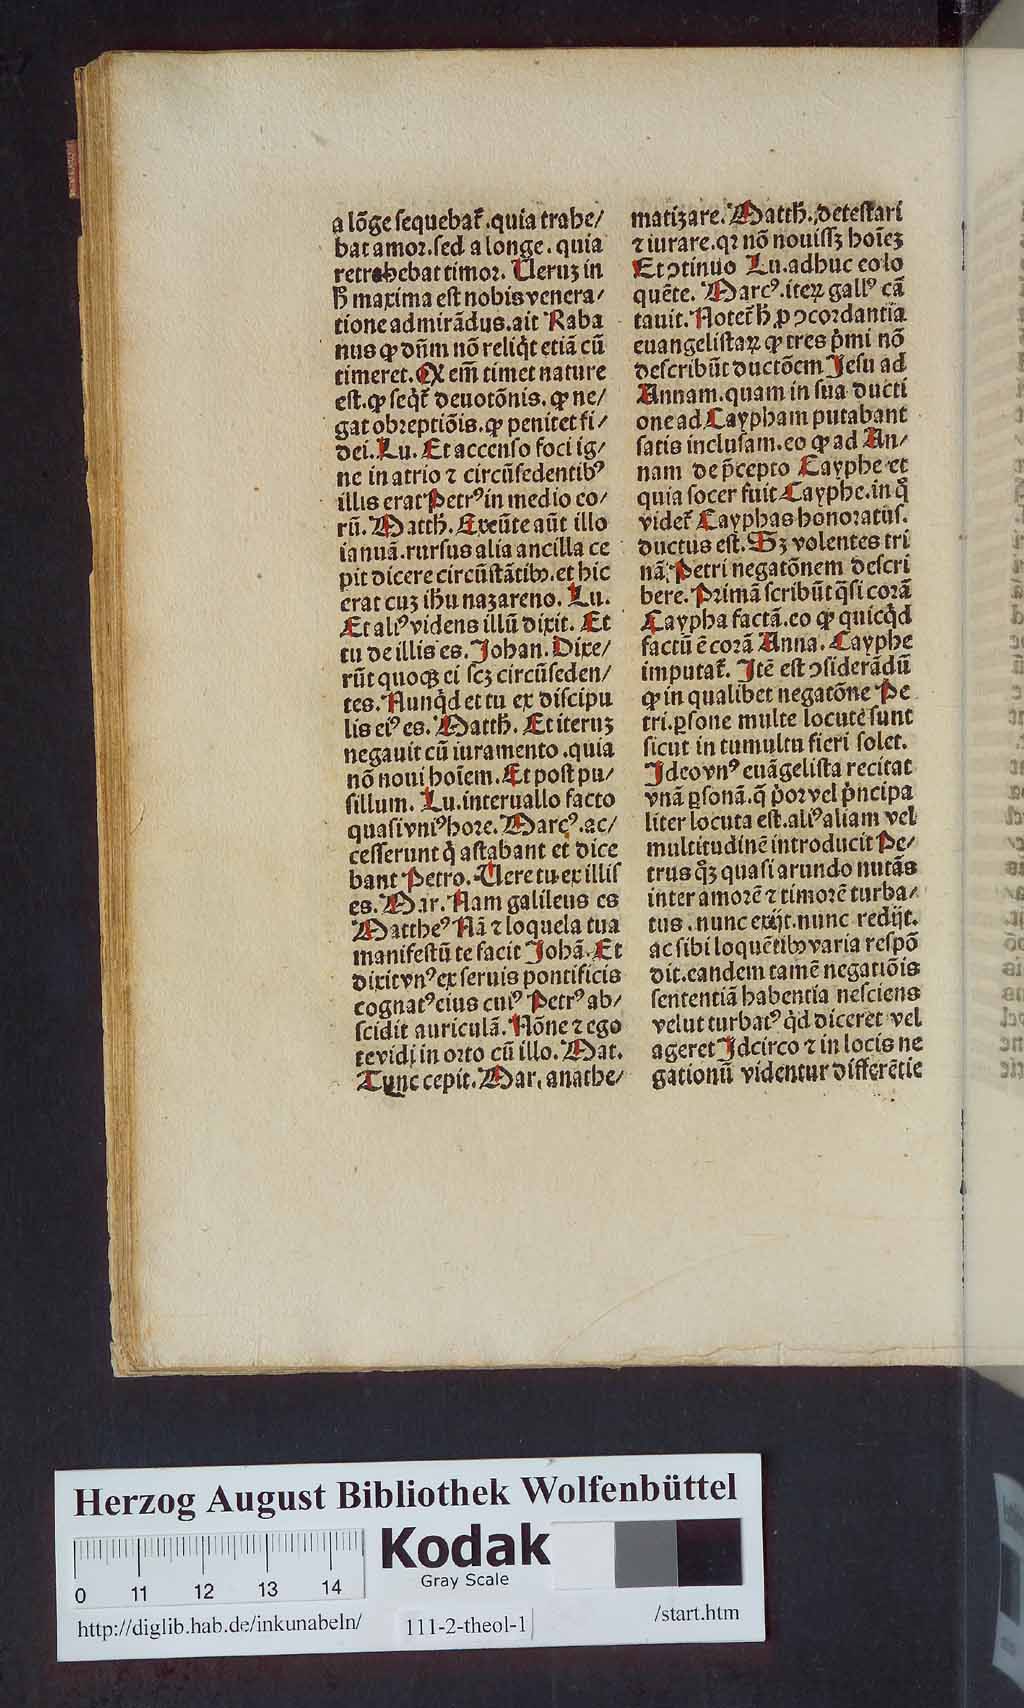 a lõge sequebat᷑. quia trahe/
bat amor. sed a longe. quia
retrahebat timor. Ueruꝫ in
ħ maxima est nobis venera/
tione admirãdus. ait Raba
nus ꝙ dñm nõ reliq̇t etiã cũ
timeret. Qx em̃ timet nature
est. ꝙ seq̇t᷑ deuotõnis. ꝙ ne/
gat obreptiõis. ꝙ penitet fi/
dei. Lu. Et accenso foci ig/
ne in atrio ⁊ circũsedentibꝰ
illis erat Petrꝰ in medio eo/
rũ. Matth̃. Exeũte aũt illo
ianuã. rursus alia ancilla ce
pit dicere circũstãtibꝰ. et hic
erat cuꝫ ihũ nazareno. Lu.
Et aliꝰ videns illũ dixit. Et
tu de illis es. Johan. Dixe/
rũt quoqꝫ ei scꝫ circũseden/
tes. Nunq̇d et tu ex discipu
lis eiꝰ es. Matth̃. Et iteruꝫ
negauit cũ iuramento. quia
nõ noui hoĩem. Et post pu/
sillum. Lu. interuallo facto
quasi vniꝰ hore. Marcꝰ. ac/
cesserunt q̇ astabant et dice
bant Petro. Uere tu ex illis
es. Mar. Nam galileus es
Mattheꝰ Nã ⁊ loquela tua
manifestũ te facit Johã. Et
dixit vnꝰ ex seruis pontificis
cognatꝰ eius cuiꝰ Petrꝰ ab/
scidit auriculã. Nõne ⁊ ego
te vidi in orto cũ illo. Mat.
Tunc cepit. Mar. anathe/
matizare. Matth̃. detestari
⁊ iurare. qꝛ nõ nouissꝫ hoĩeꝫ
Et ↄtinuo Lu. adhuc eo lo
quẽte. Marcꝰ. iteꝝ gallꝰ cã
tauit. Notet᷑ ħ. ꝓ ↄcordantia
euangelistaꝝ ꝙ tres p̃mi nõ
describũt ductõem Jesu ad
Annam. quam in sua ducti
one ad Caypham putabant
satis inclusam. eo ꝙ ad An/
nam de p̃cepto Cayphe et
quia socer fuit Cayphe. in q̊
videt᷑ Cayphas honoratus.
ductus est. Sꝫ volentes tri
nã Petri negatõnem descri
bere. Primã scribũt q̃si corã
Caypha factã. eo ꝙ quicq̇d
factũ ẽ corã Anna. Cayphe
imputat᷑. Itẽ est ↄsiderãdũ
ꝙ in qualibet negatõne Pe
tri. ꝑsone multe locute sunt
sicut in tumultu fieri solet.
Ideo vnꝰ euãgelista recitat
vnã ꝑsonã. q̃ p̃or vel p̃ncipa
liter locuta est. aliꝰ aliam vel
multitudinẽ introducit Pe/
trus qꝫ quasi arundo nutãs
inter amorẽ ⁊ timorẽ turba/
tus. nunc exijt. nunc redijt.
ac sibi loquẽtibꝰ varia respõ
dit. eandem tamẽ negatiõis
sententiã habentia nesciens
velut turbatꝰ q̇d diceret vel
ageret Idcirco ⁊ in locis ne
gationũ videntur differẽtie
Herzog August Bibliothek Wolfenbüttel
Kodak
Gray Scale
0 11 12 13 14
http://diglib.hab.de/inkunabeln/ 111-2-theol-1 /start.htm